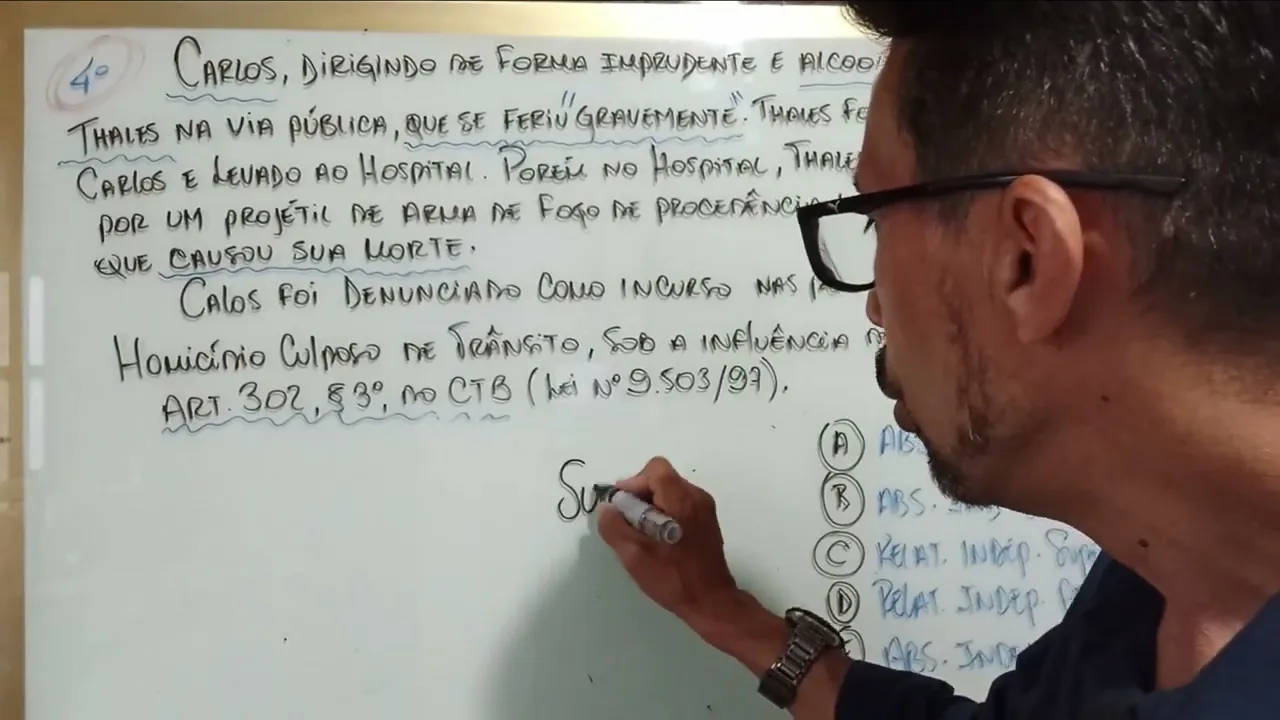 4º
CARLOS, DIRIGINDO DE FORMA IMPRUDENTE E
THALES NA VIA PÚBLICA, QUE SE FERIU "GRAVEMENTE". THALES
CARLOS E LEVADO AO HOSPITAL. PORÉM NO HOSPITAL,
POR UM PROJÉTIL DE ARMA DE FOGO DE
QUE CAUSOU SUA MORTE.
CALOS FOI DENUNCIADO COMO INCURSO NAS
HOMICÍDIO CULPOSO DE TRÂNSITO, SOB A INFLUÊNCIA
ART. 302, § 3º, DO CTB (LEI Nº 9.503/97).
Su
A
B ABS.
C RELAT. INDEP.
D RELAT. INDEP.
ABS.